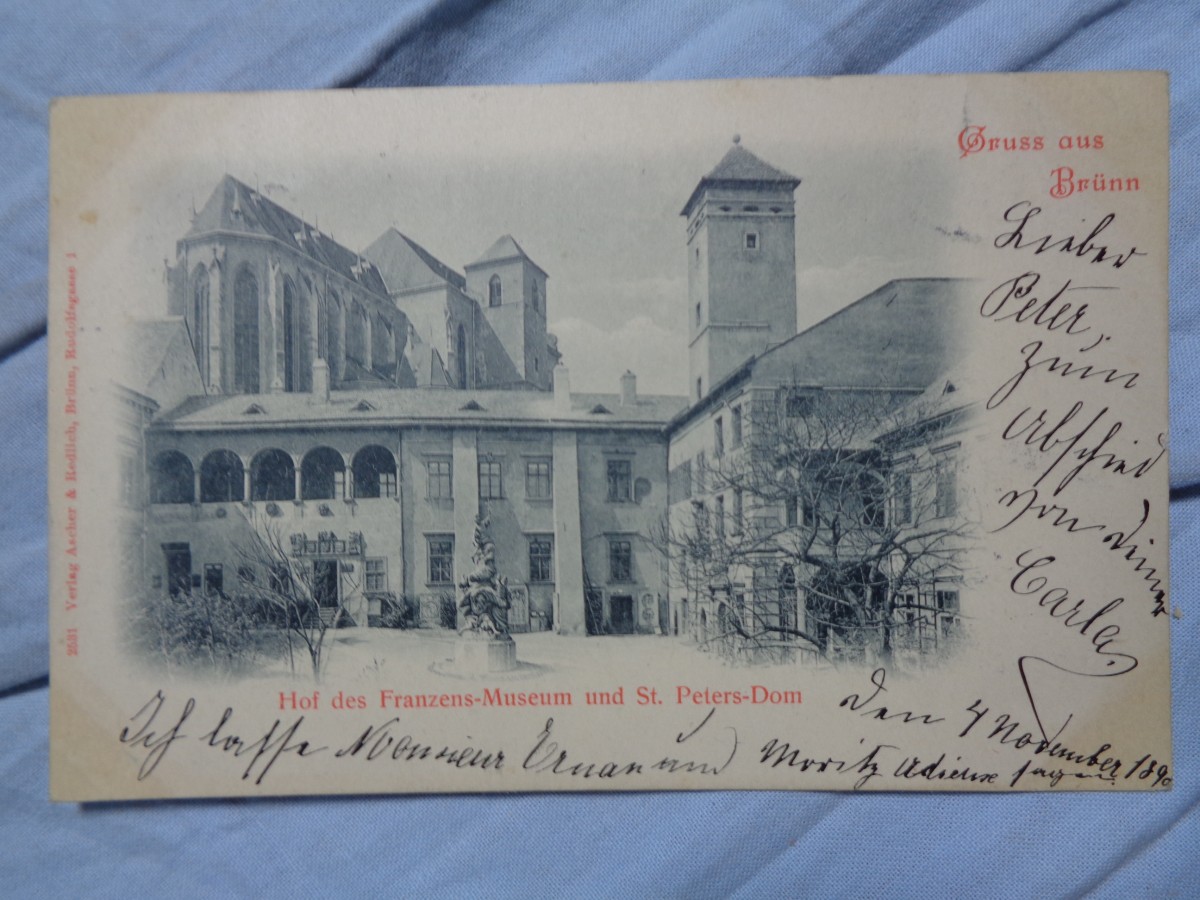 Gruss aus
Brünn
Lieber
Peter,
Zum
Abschied
von Deiner
Carla.
2281 Verlag Ascher & Redlich, Brünn, Rudolfsgasse 1
Hof des Franzens-Museum und St. Peters-Dom
Den 4 November
Ich lasse Monsieur und Moritz Adieux sagen.